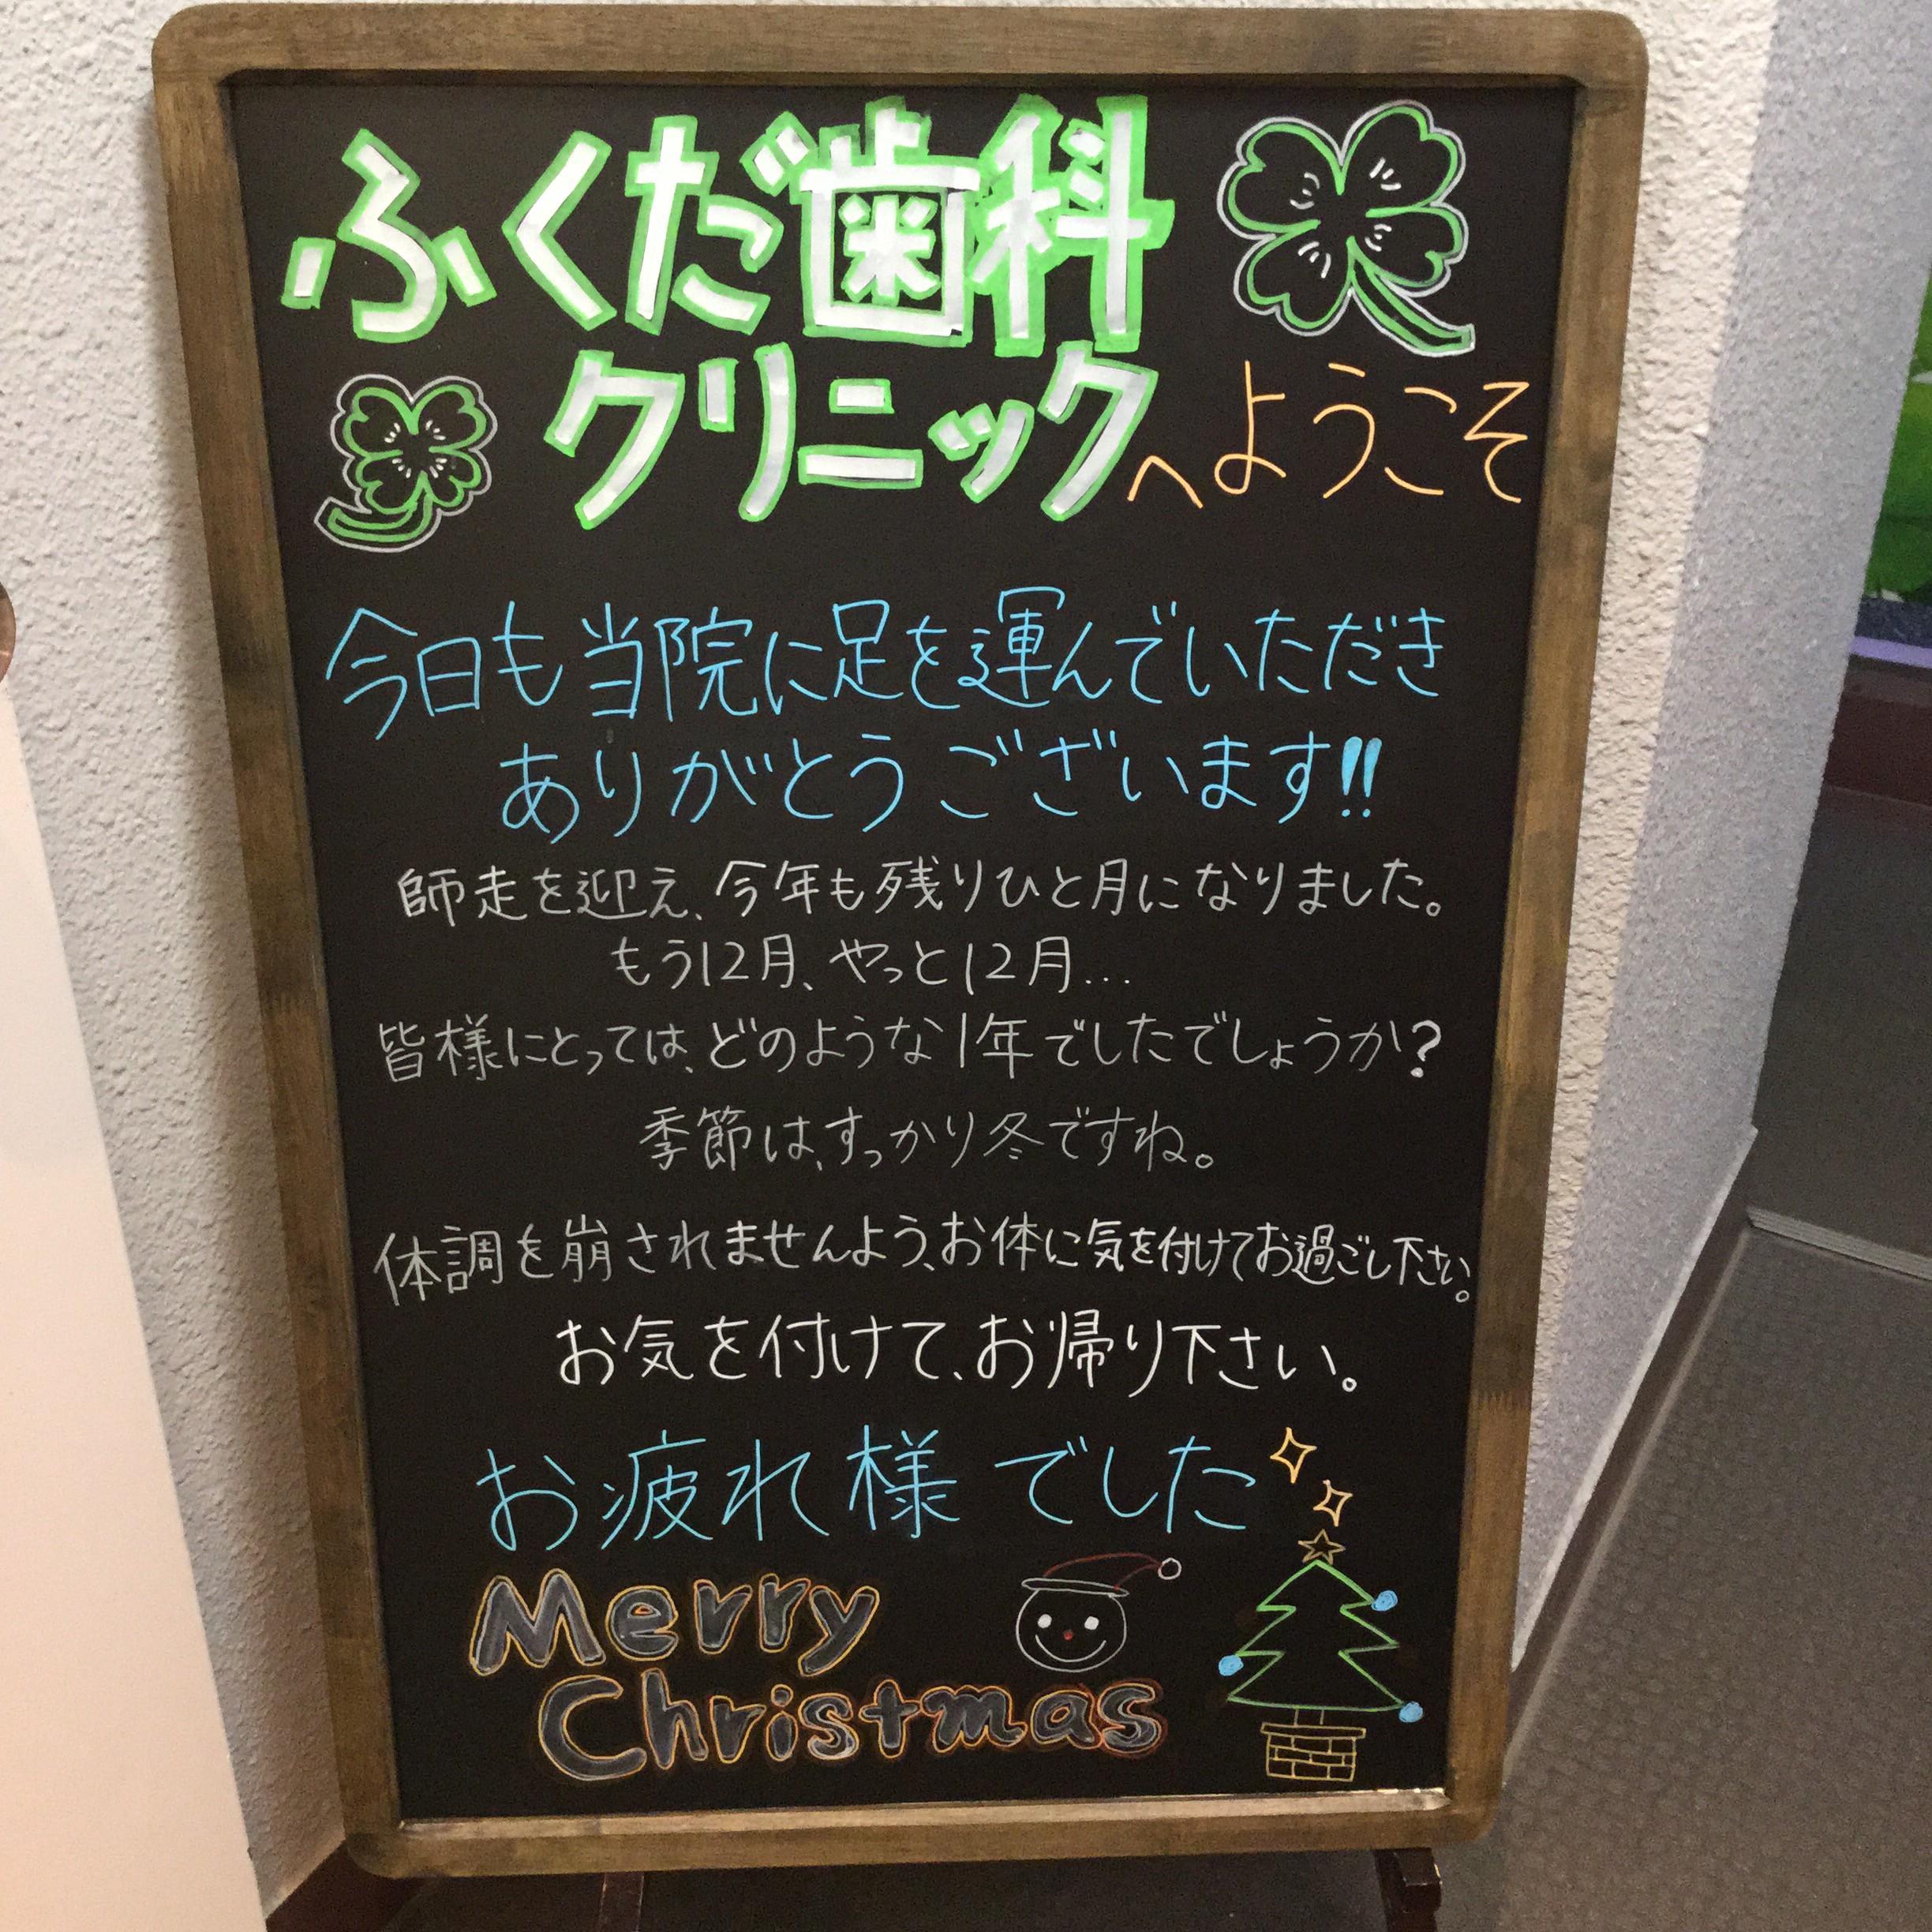 ふくだ歯科
クリニックへようこそ
今日も当院に足を運んでいただき
ありがとうございます!!
師走を迎え、今年も残りひと月になりました。
もう12月、やっと12月...
皆様にとっては、どのような1年でしたでしょうか?
季節は、すっかり冬ですね。
体調を崩されませんよう、お体に気を付けてお過ごし下さい。
お気を付けて、お帰り下さい。
お疲れ様でした
Merry
Christmas